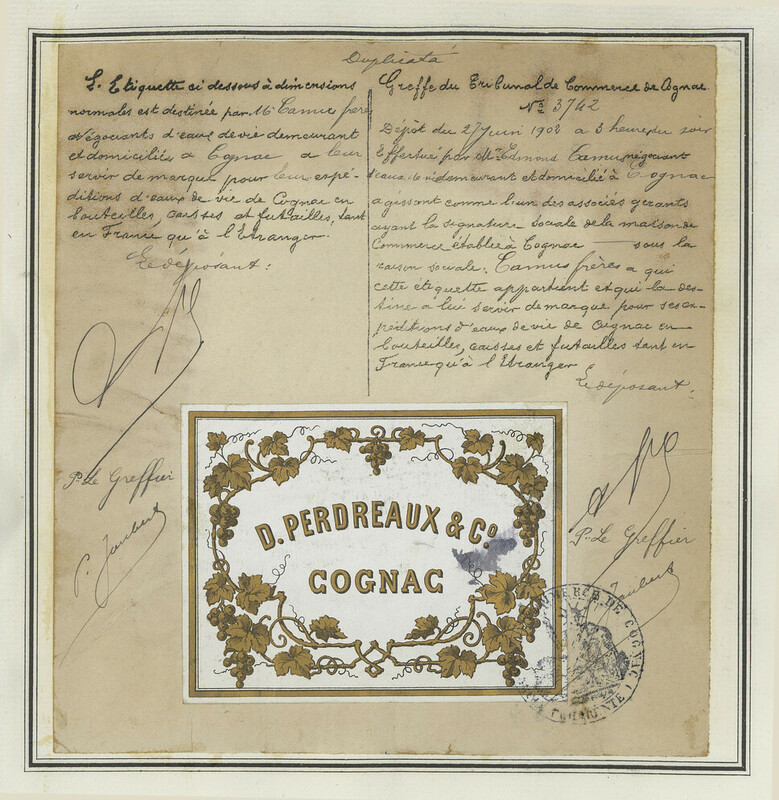 Duplicata
L'Etiquette ci dessous à dimensions
normales est destinée par Mr Camus frères
Négociants d'eaux de vie demeurant
et domiciliés à Cognac à leur
servir de marque pour leur expé-
ditions d'eaux de vie de Cognac en
bouteilles, caisses et futailles, tant
en France qu'à l'Etranger.
Le déposant:
Pr Le Greffier
P. Jaubert
Greffe du Tribunal de Commerce de Cognac.
No 3742
Dépôt du 27 juin 1902 à 3 heures du soir
Effectué par Mr Edmond Camus négociant
eaux de vie demeurant et domicilié à Cognac
agissant comme l'un des associés gérants
ayant la signature sociale de la maison de
Commerce établie à Cognac — sous la
raison sociale: Camus frères à qui
cette étiquette appartient et qui la des-
tine à lui servir de marque pour ses ex-
péditions d'eaux de vie de Cognac en
bouteilles, caisses et futailles tant en
France qu'à l'Etranger
Le déposant:
Pr Le Greffier
Jaubert
D. PERDREAUX & Co
COGNAC
COMMERCE DE COGNAC
CHARENTE